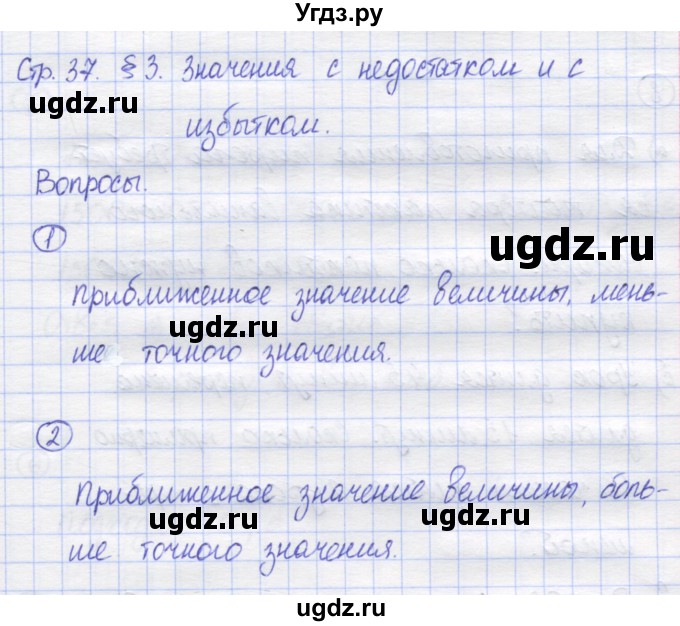 Угдз.ру
Стр. 37. § 3. Значения с недостатком и с
ugdz.ru
избытком.
Вопросы.
1
ugdz.ru
Приближенное значение величины, мень-
ugdz.ru
ше точного значения.
2
Приближенное значение величины, боль-
ugdz.ru ugdz.ru
ше точного значения.
ugdz.ru